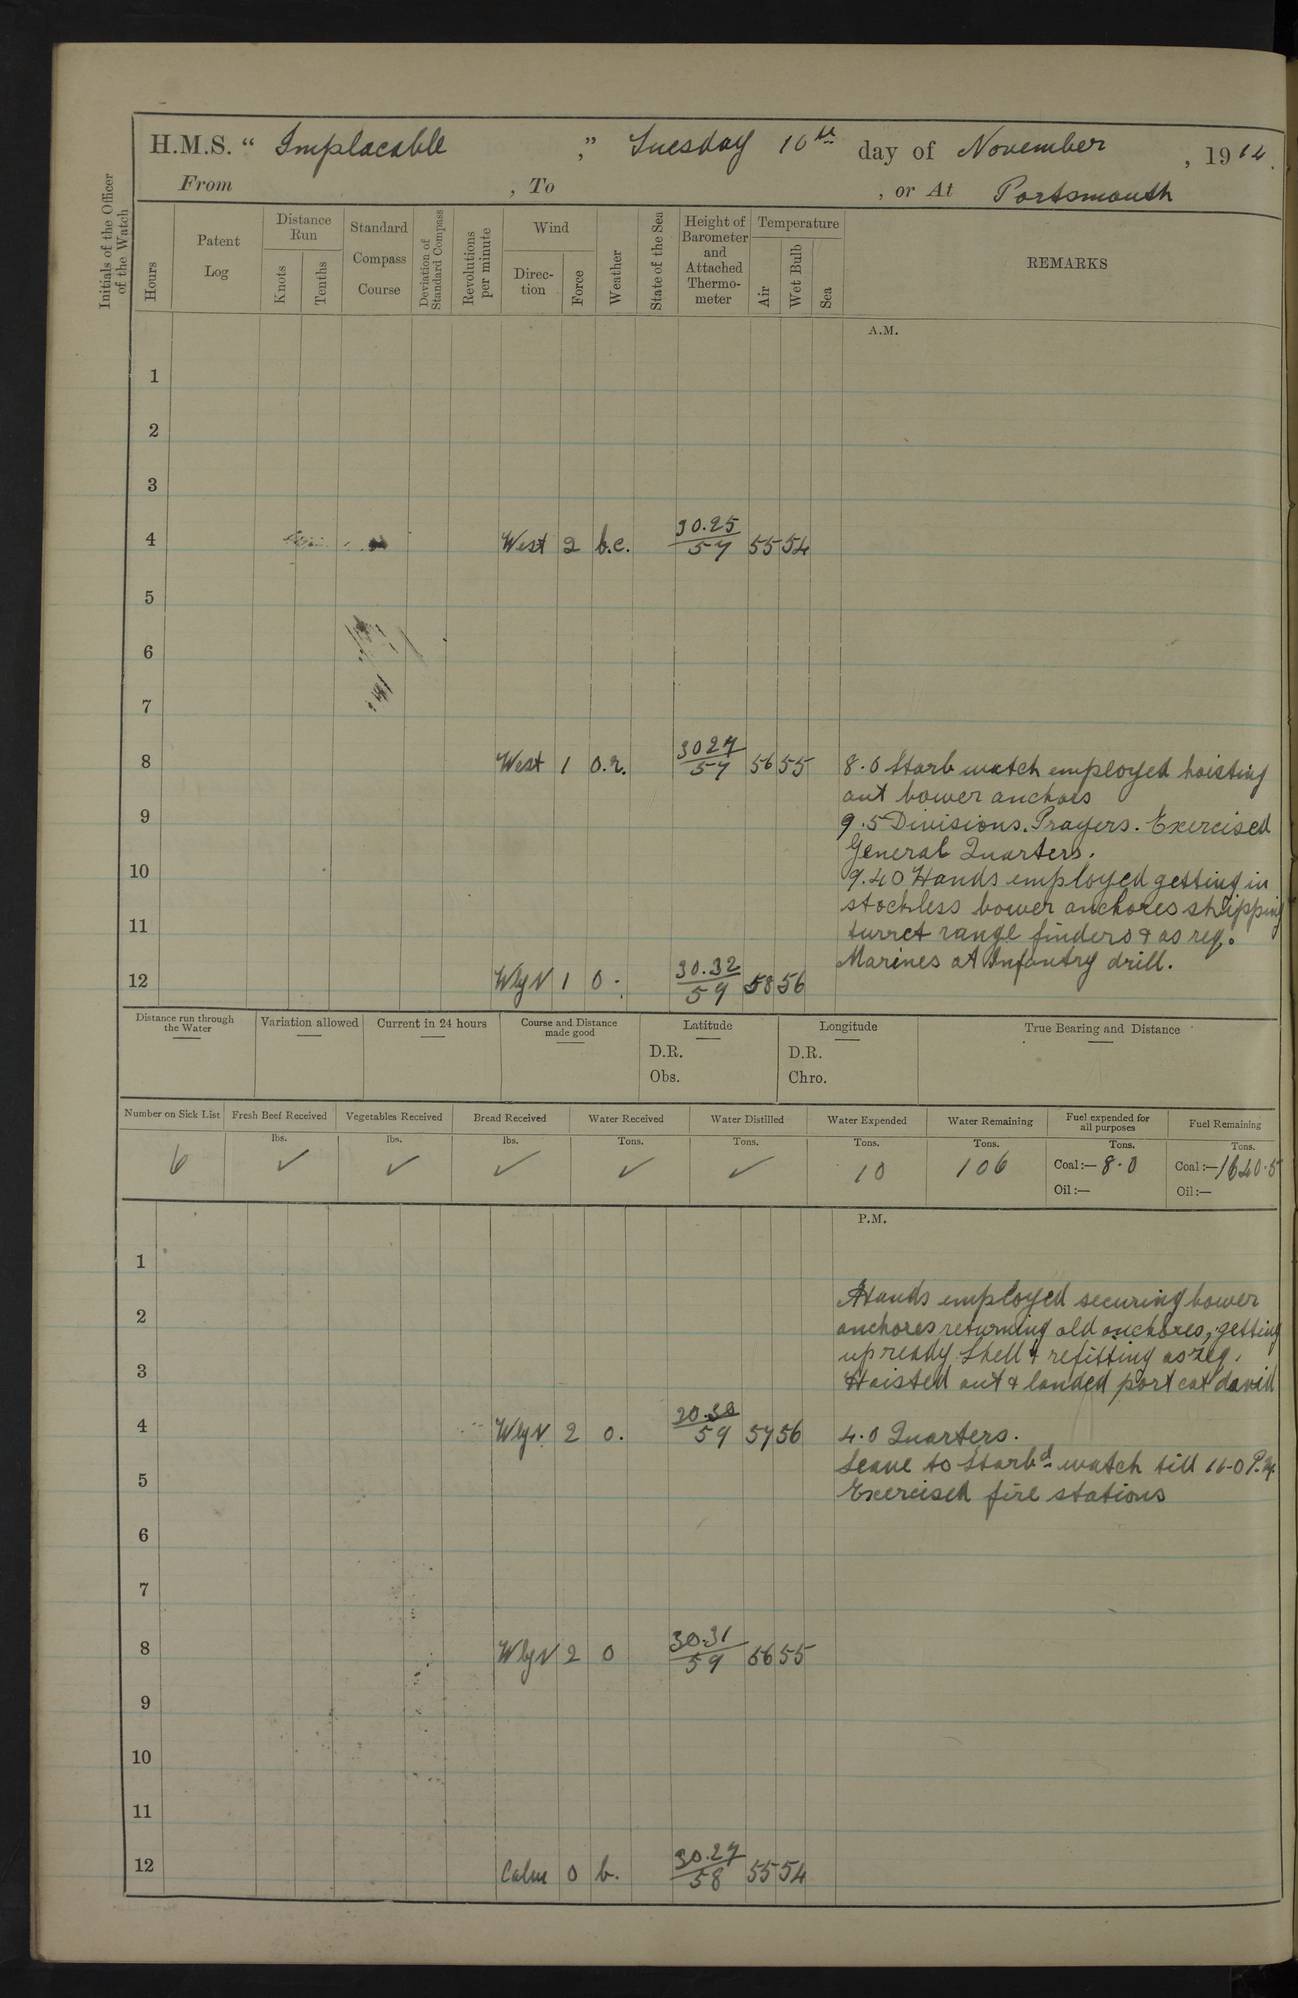 H.M.S. "Implacable," Tuesday 10th day of November, 1914.
From , To , or At Portsmouth
Initials of the Officer of the Watch
Hours
Patent Log
Distance Run
Knots
Tenths
Standard Compass Course
Deviation of Standard Compass
Revolutions per minute
Wind
Direction
Force
Weather
State of the Sea
Height of Barometer and Attached Thermometer
Temperature
Air
Wet Bulb
Sea
REMARKS
A.M.
1
2
3
4 West 2 b.c. 30.25/57 55 54
5
6
7
8 West 1 o.r. 30 27/57 56 55 8.0 Starb watch employed hoisting
out bower anchors
9 9.5 Divisions. Prayers. Exercised
General Quarters.
10 9.40 Hands employed getting in
stockless bower anchores shipping
11 turret range finders & as req.
Marines at Infantry drill.
12 WlyN 1 o. 30.32/59 58 56
Distance run through the Water
Variation allowed
Current in 24 hours
Course and Distance made good
Latitude
D.R.
Obs.
Longitude
D.R.
Chro.
True Bearing and Distance
Number on Sick List Fresh Beef Received Vegetables Received Bread Received Water Received Water Distilled Water Expended Water Remaining Fuel expended for all purposes Fuel Remaining
lbs. lbs. lbs. Tons. Tons. Tons. Tons. Tons. Tons.
6 ✓ ✓ ✓ ✓ ✓ 10 106 Coal:— 8.0 Coal:— 1640.5
Oil:— Oil:—
P.M.
1
Hands employed securing bower
2 anchores returning old anchores, getting
up ready shell & refitting as req.
3 Hoisted out & landed port cat david
4 WlyN 2 o. 30.30/59 57 56 4.0 Quarters.
Leave to Starbd watch till 11-0 P.M.
5 Exercised fire stations
6
7
8 WlyN 2 o 30.31/59 56 55
9
10
11
12 Calm 0 b. 30.27/58 55 54